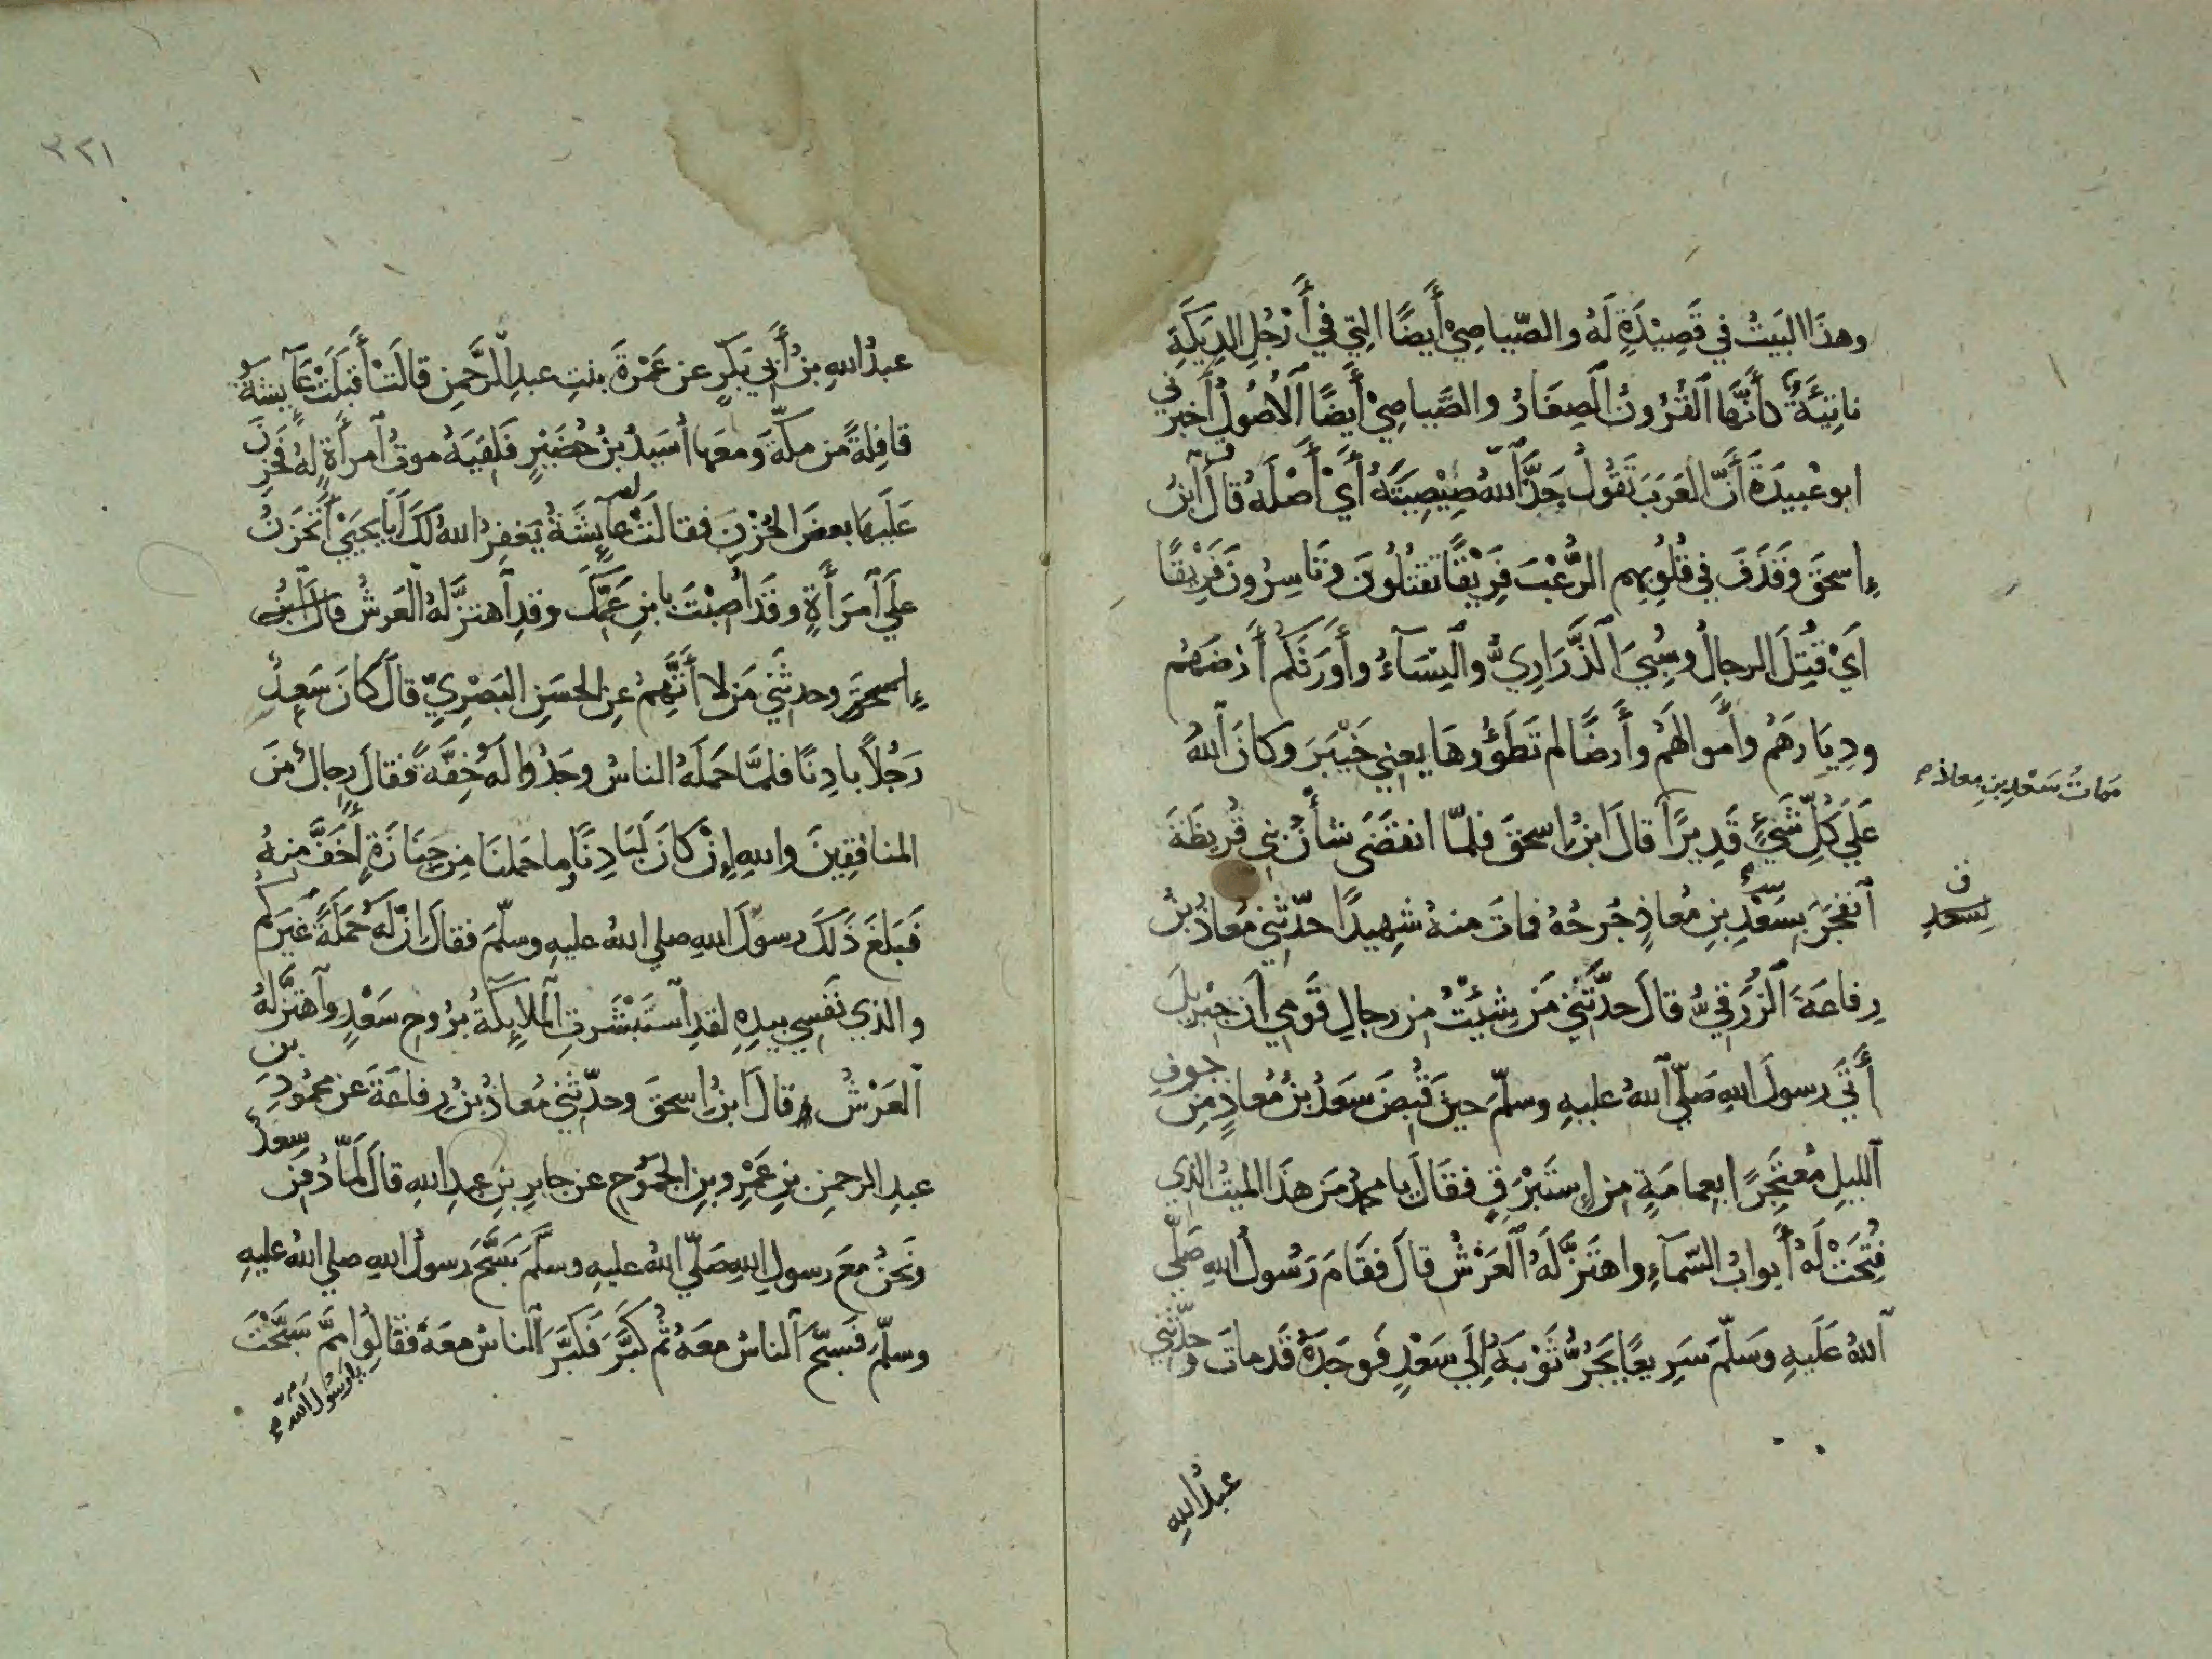 وهذا البَيتُ في قَصِيْدَةٍ لَهُ والصّياصِيْ أَيضًا التِي فِي أَرْجُلِ الدِيَكَةِ
ناتِئَةٌ كأَنَّها القُرُونُ الصِغَارُ والصَّياصِيْ أَيضًا الأُصُولُ أَخبرَني
ابو عُبيدَةَ أَنَّ العَرَبَ تَقُولُ جَدَّ اللهُ صِيْصِيَتَهُ أَيْ أَصْلَهُ قالَ ابنُ
إِسحقَ وَقَذَفَ فِي قُلُوبِهِم الرُّعْبَ فَرِيْقًا تَقتُلُونَ وَتَاسِرُونَ فَرِيْقًا
اَيْ قُتِلَ الرجالُ وسُبِيَ الذَّرَارِيُّ والنِسَآءُ وأَورَثَكُم أَرْضَهُم
ودِيَارَهُم وأَموالَهُم وأَرضًا لم تَطَؤُوها يعني خَيْبَرَ وكانَ اللهُ
عَلَي كُلِّ شَيْءٍ قَدِيرًا قالَ ابنُ إِسحقَ فلمّا انقَضَى شأنُ بني قُرَيظَةَ
مَماتُ سَعْدِ بنِ معاذ
ٱنفجَرَ بِسَعْدِ بنِ مُعاذٍ جُرحُهُ فماتَ منهُ شهِيدًا حدّثني مُعاذُ بنُ
ف
لِسَعدِ
رِفاعَةَ الزُرَقِيُّ قالَ حدّثَنِي مَن شِئْتُ من رجالِ قَومِي أن جِبْرِيلَ
أَتَى رسولَ اللهِ صَلّى اللهُ عليهِ وسلّمَ حينَ قُبِضَ سَعدُ بنُ مُعاذٍ مِن جوفِ
الليلِ مُعْتَجِرًا بعِمامَةٍ من إِستَبْرَقٍ فقَالَ يا محمدُ مَن هذَا الميتُ الذي
فُتِحَتْ لَهُ أَبوابُ السّمآءِ واهتَزَّ لَهُ العَرْشُ قالَ فقَامَ رَسُولُ اللهِ صَلّى
اللهُ عَلَيهِ وَسَلّمَ سَرِيعًا يَجُرُّ ثَوْبَهُ إِلَي سَعْدٍ فَوجَدَهُ قَد ماتَ وحدّثَني
عبدُ اللهِ
٣٢١
عبدُ اللهِ بنُ أَبي بَكرٍ عن عَمْرَةَ بنتِ عبدِ الرَّحمنِ قالَتْ أَقبَلَتْ عَآيشةُ
قافِلةً من مكّةَ ومَعَها أُسَيدُ بنُ حُضَيْرٍ فَلَقِيَهُ موتُ امرأَةٍ لهُ فَحَزِنَ
عَلَيها بعضَ الحُزْنِ فقالَتْ لهُ عآيِشَةُ يَغفِرُ اللهُ لَكَ أَبا يَحيَى أَتَحزَنُ
عَلَي ٱمرَأَةٍ وقَد أُصِبْتَ بابنِ عَمِّكَ وقدِ ٱهتزَّ لهُ العَرشُ قالَ ابنُ
إِسحقَ وحدثَني مَن لا أَتَّهِمُ عنِ الحَسَنِ البَصْرِيِّ قالَ كَانَ سَعدٌ
رَجُلاً بادِنًا فلمّا حمَلَهُ الناسُ وجَدُوا لَهُ خِفَّةً فقالَ رِجالٌ منَ
المنافِقِينَ واللهِ إِنْ كَانَ لَبَادِنًا وما حَملنَا مِن جِنَازَةٍ أَخَفَّ منهُ
فَبَلَغَ ذَلكَ رسولَ اللهِ صلي اللهُ عليهِ وسلّمَ فقالَ إِنّ لَهُ حَمَلَةً غَيرَكُم
والذي نَفسِي بيدِهِ لقدِ ٱستَبْشَرتِ الملآيِكَةُ برُوحِ سَعْدٍ وٱهتزَّ لهُ
العَرْشُ قالَ ابنُ إِسحقَ وحدّثَني مُعاذُ بنُ رِفاعَةَ عَن محمُودِ بن
عبدِ الرحمنِ بنِ عَمْرِو بنِ الجَمُوحِ عن جابرِ بنِ عبدِ اللهِ قالَ لَمّا دُفِنَ سعدٌ
ونَحنُ معَ رسولِ اللهِ صَلّى اللهُ عليهِ وسلَّمَ سَبَّحَ رسولُ اللهِ صلي اللهُ عليهِ
وسلّمَ فَسَبّحَ الناسُ معَهُ ثُم كَبَّرَ فَكَبَّرَ الناسُ معَهُ فقَالُوا مِمَّ سَبَّحْتَ
يا رَسُولَ اللهِ